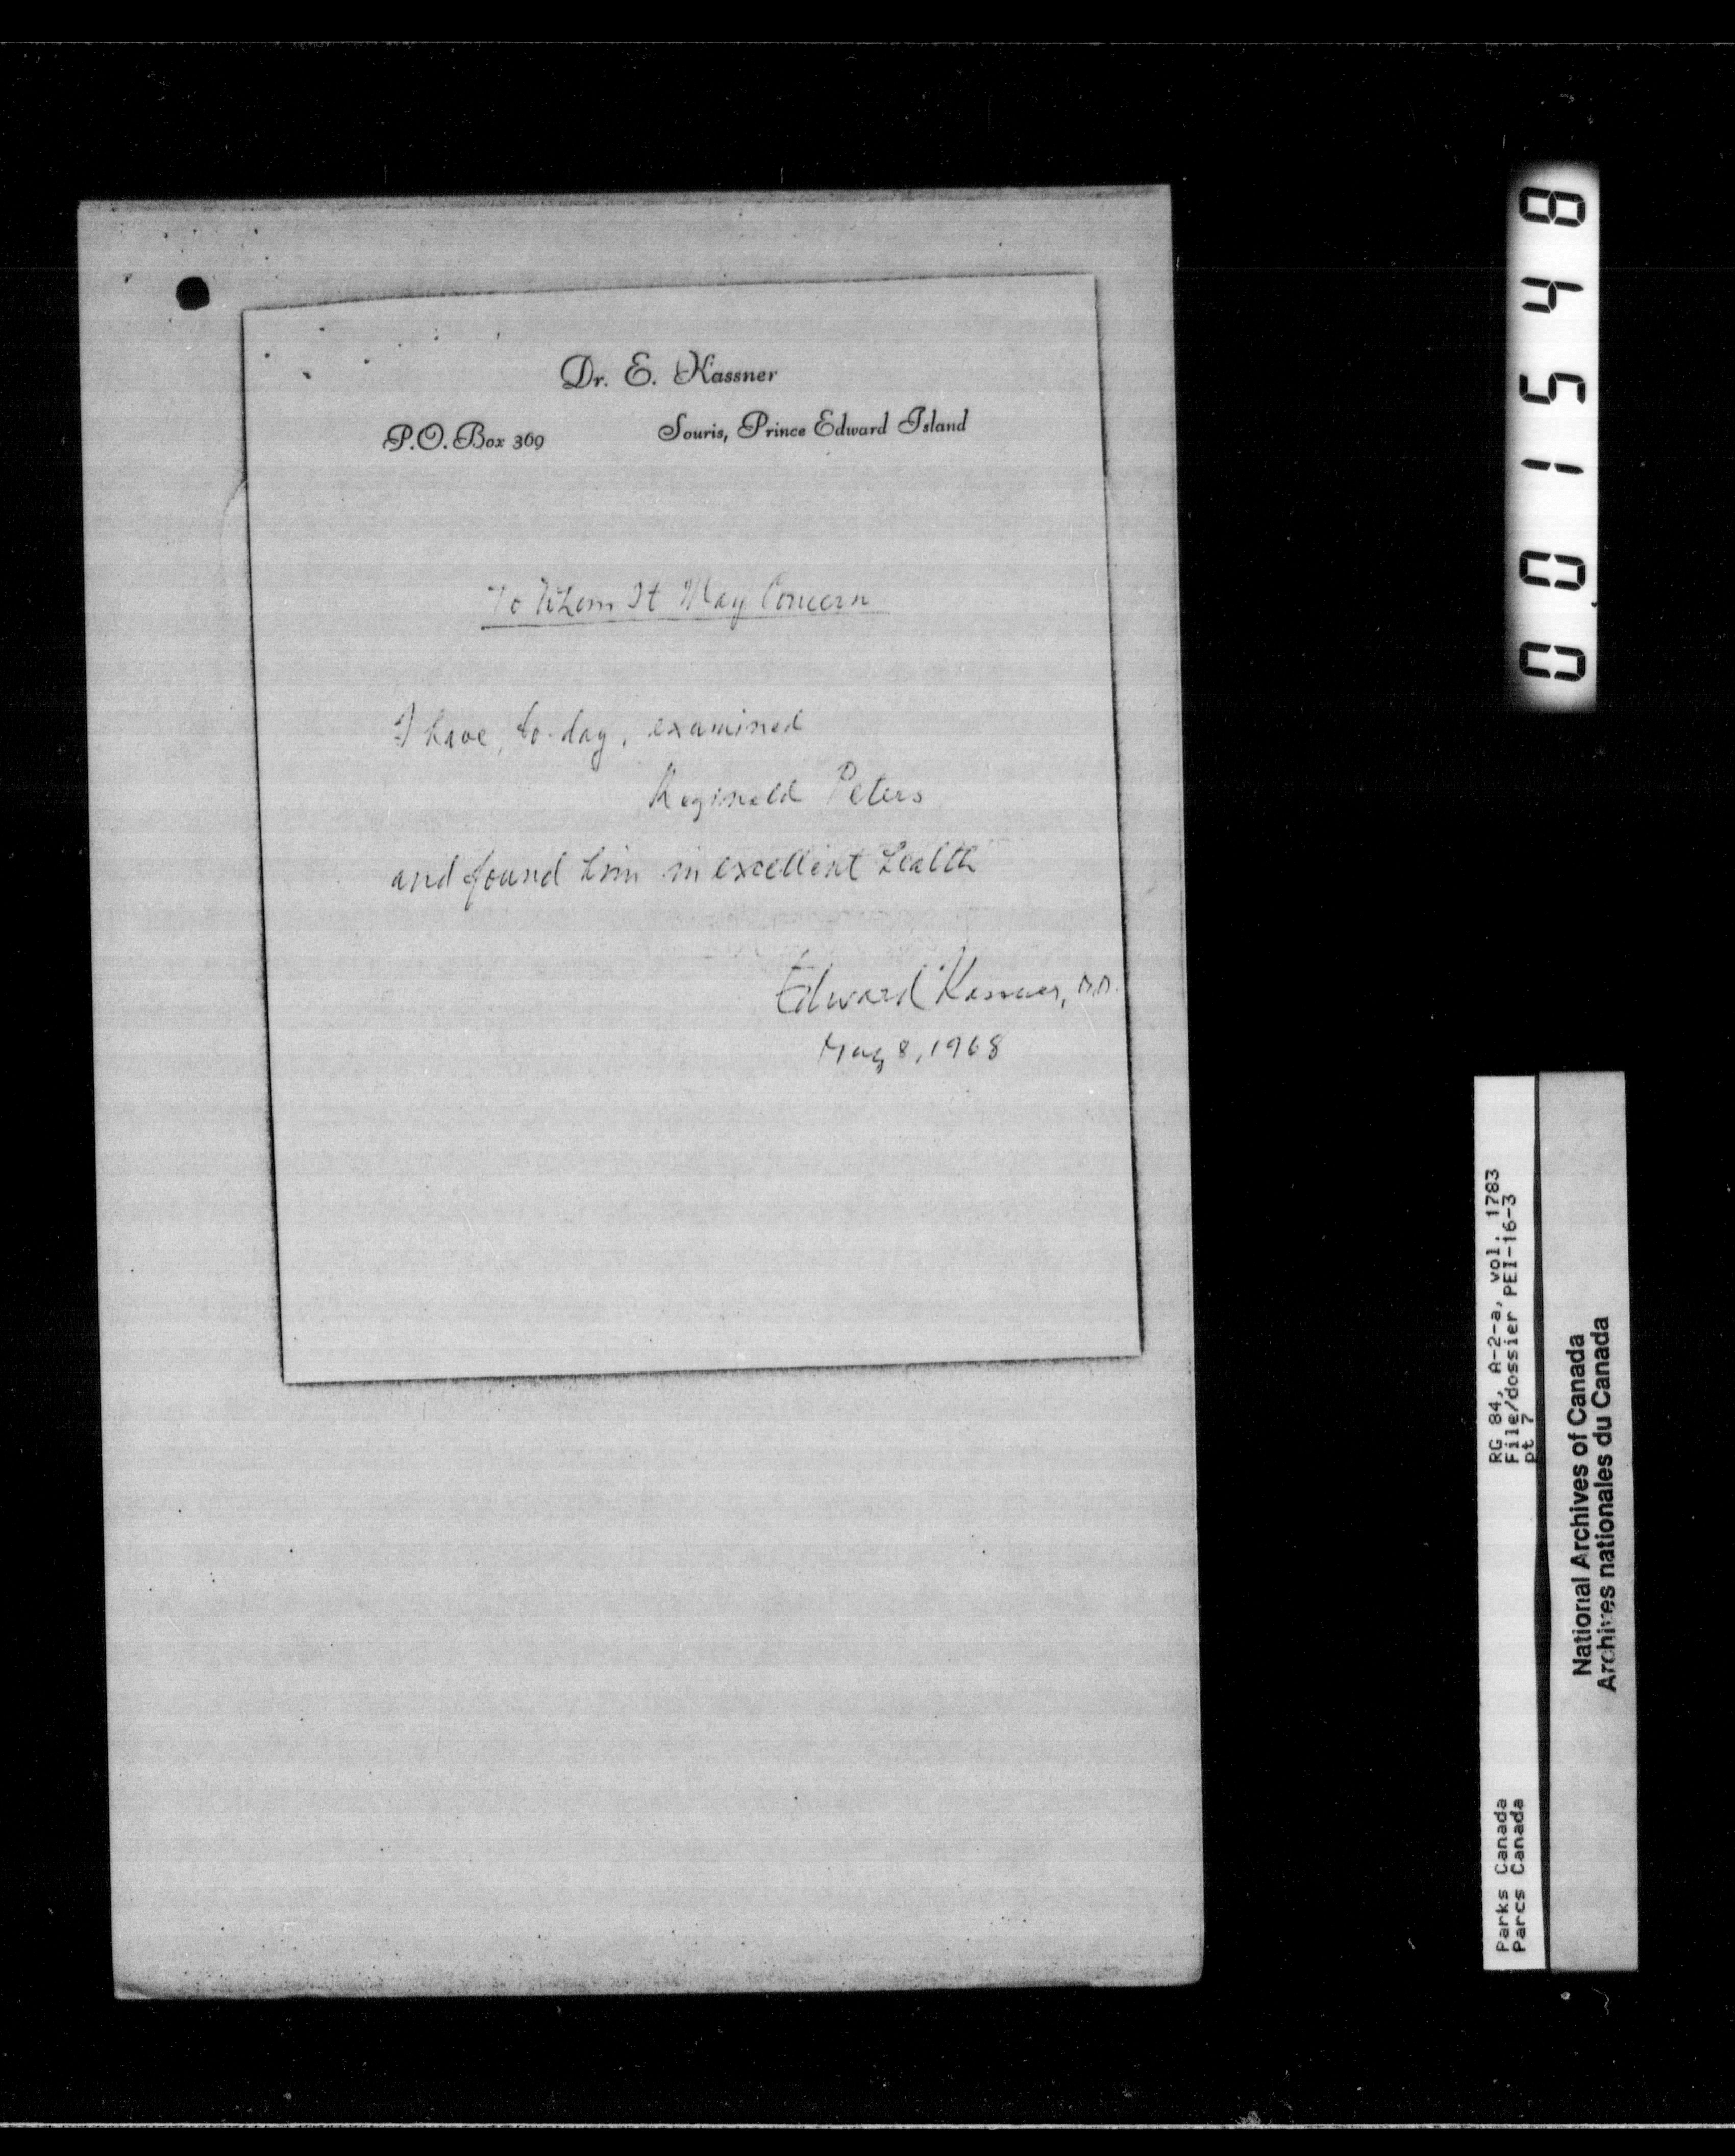 Dr. E. Kassner
P.O. Box 369 Souris, Prince Edward Island
To Whom It May Concern
I have, to-day, examined
Reginald Peters
and found him in excellent health
Edward Kassner, M.D.
May 8, 1968
001548
RG 84, A-2-a, vol. 1783
File/dossier PEI-16-3
pt 7
Parks Canada
Parcs Canada
National Archives of Canada
Archives nationales du Canada